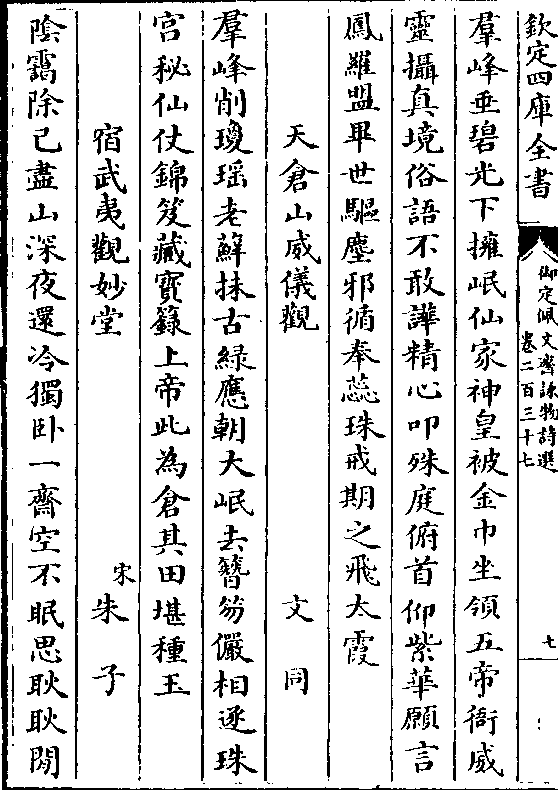 欽定四庫全書
御定佩文齋詠物詩選
卷二百三十七
七
羣峰垂碧光下擁岷仙家神皇被金巾坐領五帝衙威
靈攝真境俗語不敢譁精心叩殊庭俯首仰紫華願言
鳳羅盟畢世驅塵邪循奉蕊珠戒期之飛太霞
天倉山威儀觀 文同
羣峰削瓊瑶老蘚抹古緑應朝大岷去簪笏儼相逐珠
宫秘仙仗錦笈藏寳籙上帝此為倉其田堪種玉
宿武夷觀妙堂 宋朱子
陰靄除已盡山深夜還冷獨卧一齋空不眠思耿耿閒